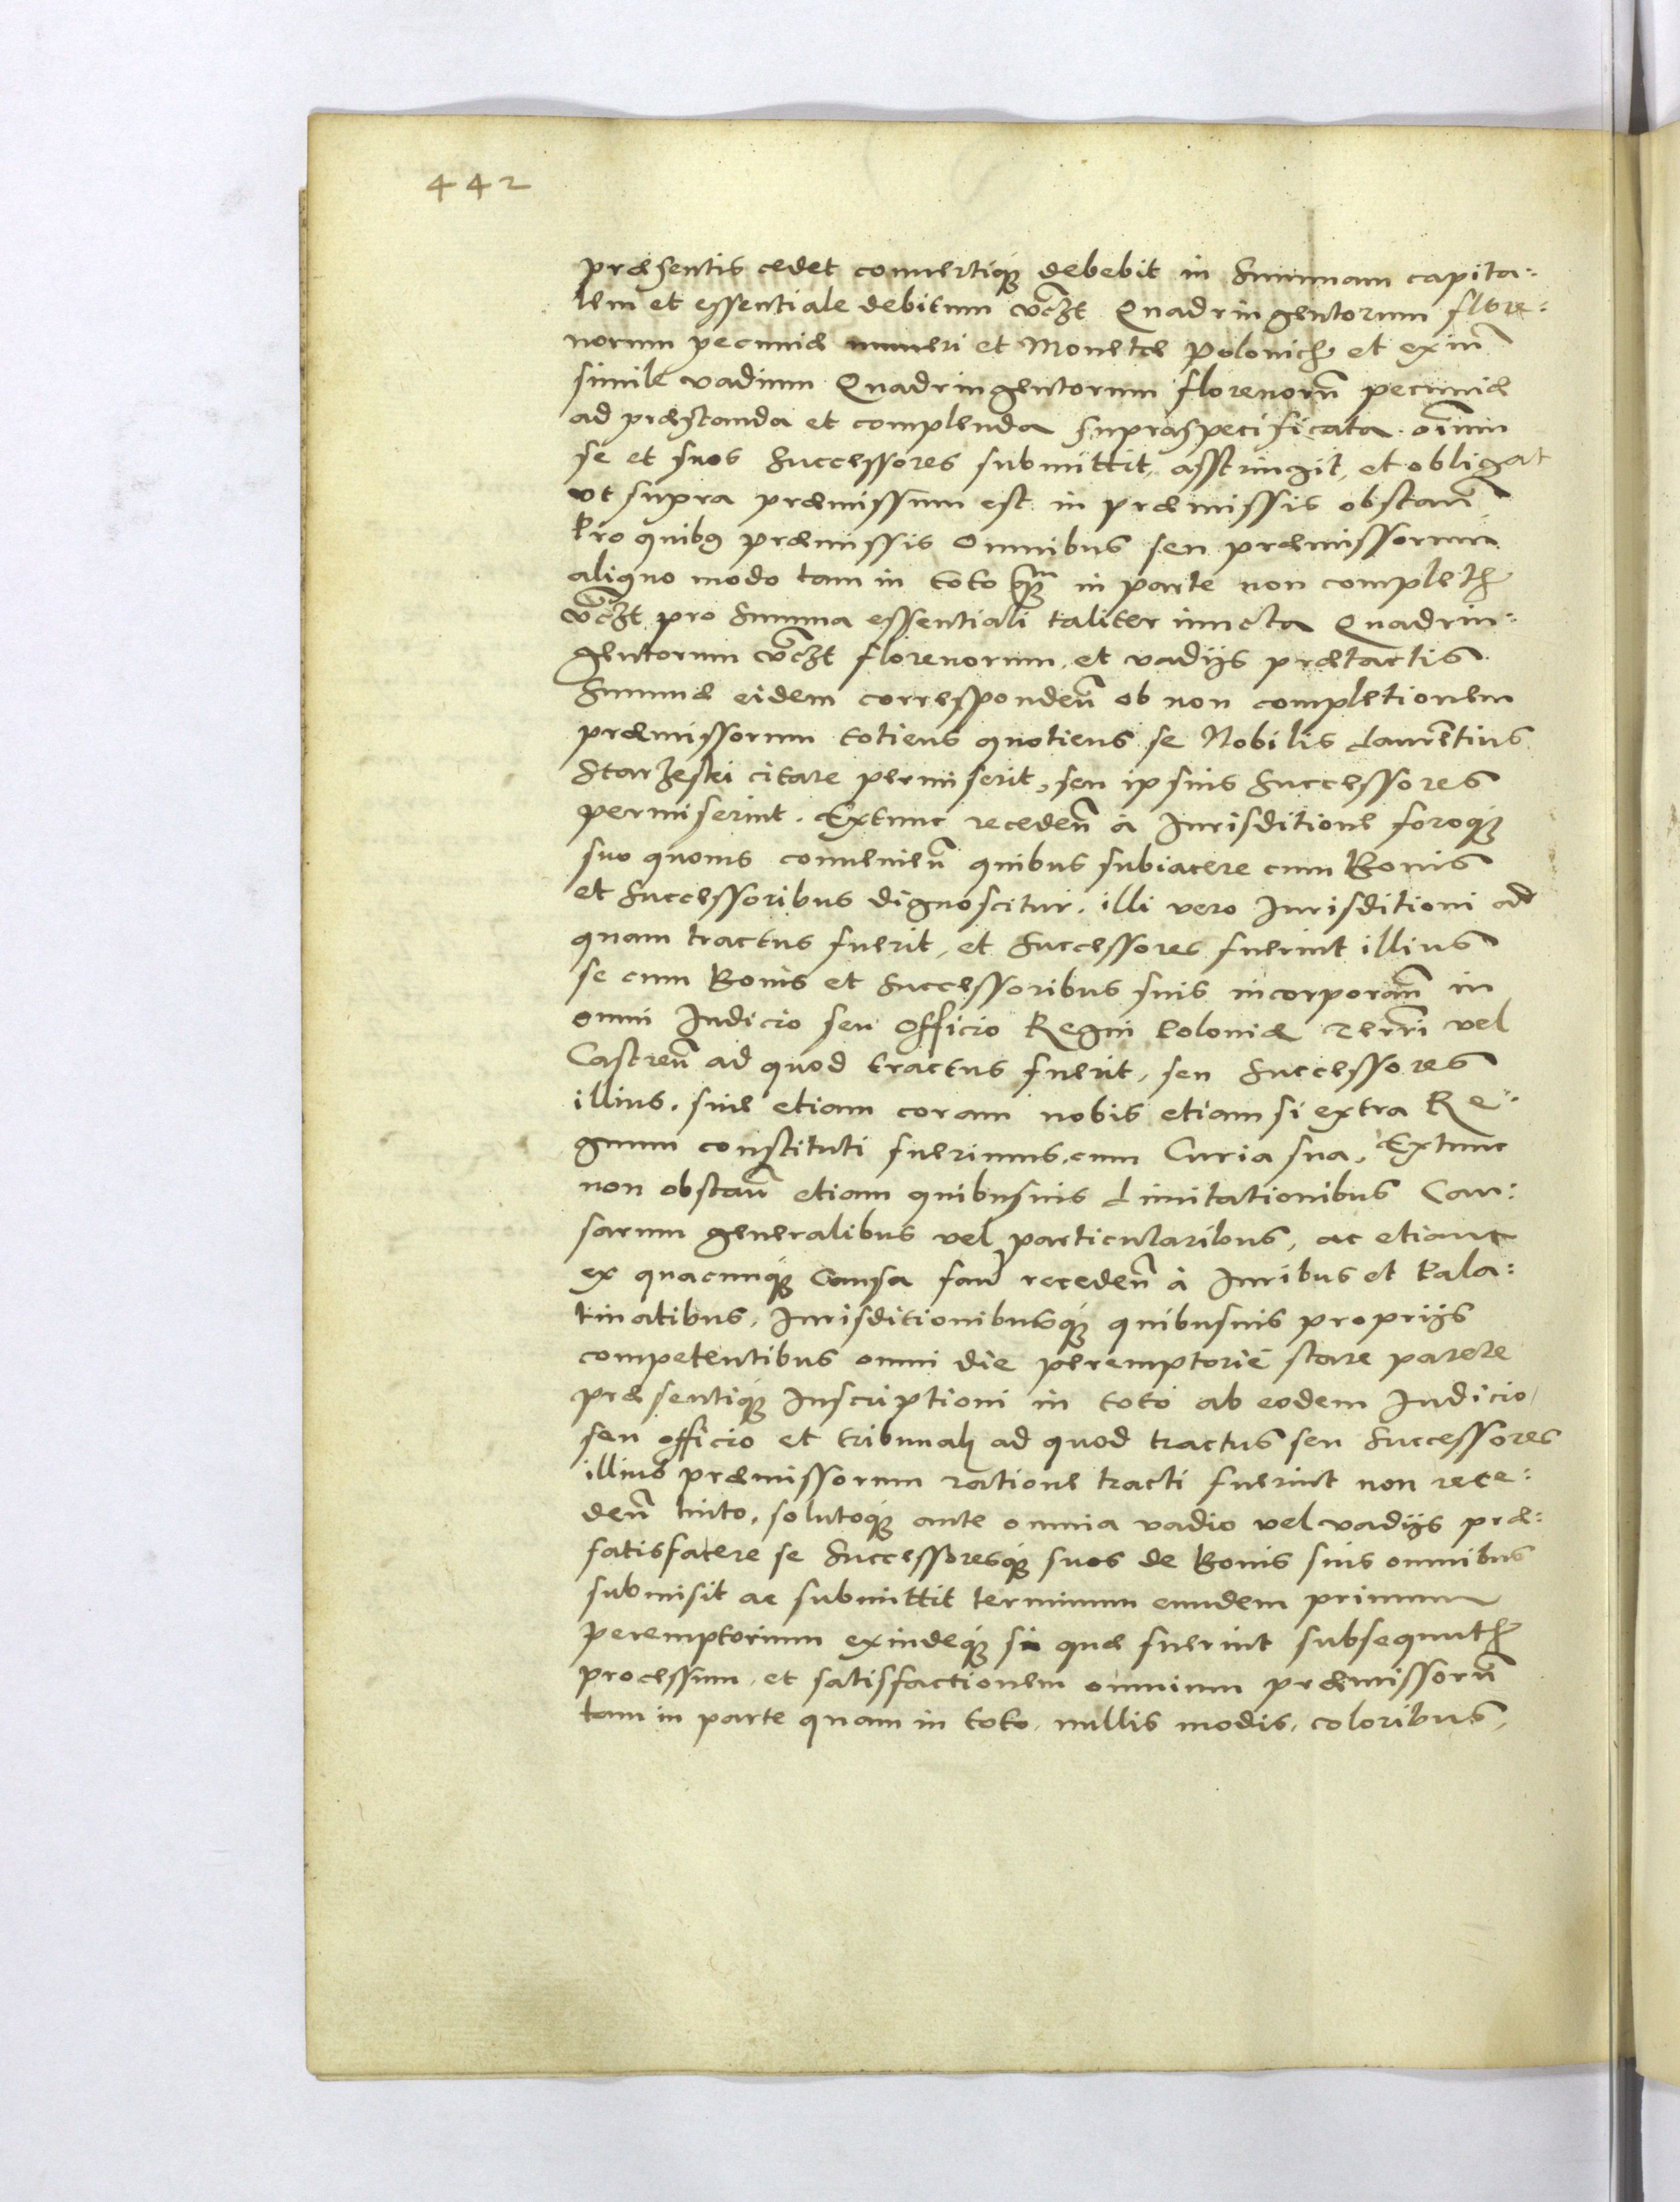 442
præsentis cedet conuertiq̃ȝ debebit in Summam capita:
lem et essentiale debitum vc̃zt Quadringentorum flore:
norum pecuniæ numeri et Monetæ Polonicæ et ex in̄
simile vadium Quadringentorum florenorū pecuniæ
ad præstanda et complenda supraspecificata. oīnm
se et suos Successores submittit, asstringit, et obligat
vt supra præmissum est in præmissis obstan̄
Pro quibꝯ præmissis omnibus seu præmissorum
aliquo modo tam in toto q̃ȝm in parte non completꝭ
vc̃zt pro Summa essentiali taliter iuncta Quadrin:
gentorum vc̃zt florenorum, et vadijs prætactis
Summæ eidem corresponden̄ ob non completionem
præmissorum totiens quotiens se Nobilis Laurētius
Starzeski citare permiserit, seu ipsius Successores
permiserint. Extunc receden̄ à Jurisditione foroq̃ȝ
suo quouis conuenien̄ quibus subiacere cum Bonis
et Successoribus dignoscitur. illi vero Jurisditioni ad
quam tractus fuerit, et Successores fuerint illius
se cum Bonis et Successoribus suis incorporan̄ in
omni Judicio seu Officio Regni Poloniæ Terrī vel
Castren̄ ad quod tractus fuerit, seu Successores
illius, siue etiam coram nobis etiam si extra Re:
gnum constituti fuerimus, cum Curia sua, Extunc
non obstan̄ etiam quibusuis Limitationibus Cau:
sarum generalibus vel particularibus, ac etiam
ex quacumq̃ȝ Causa fan̄ receden̄ à Juribus et Pala:
tinatibus, Jurisditionibusq̃ȝ quibusuis proprijs
competentibus omni die peremptoriè stare parere
præsentiq̃ȝ Inscriptioni in toto ab eodem Judicio,
seu officio et tribunalj ad quod tractus seu Successores
illius præmissorum ratione tracti fuerint non rece:
den̄ luito, solutoq̃ȝ ante omnia vadio vel vadijs præ:
satisfacere se Successoresq̃ȝ suos de Bonis suis omnibus
submisit ac submittit terminum eundem primum
peremptorium exindeq̃ȝ si quæ fuerint subsequutꝭ
processum, et satisfactionem omnium præmissorū
tam in parte quam in toto, nullis modis, coloribus,